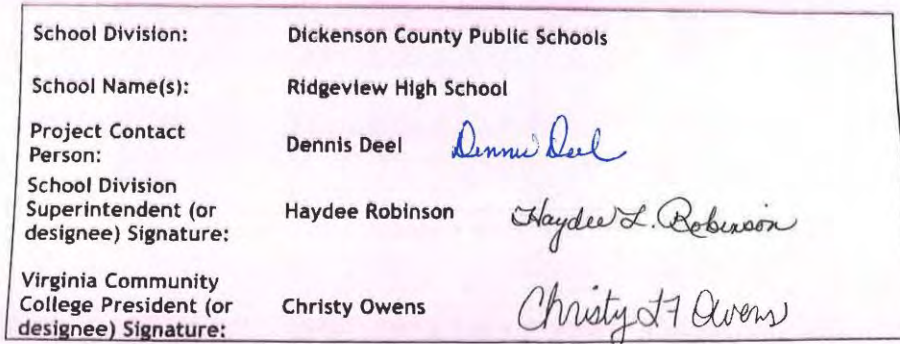 School Division: Dickenson County Public Schools
School Name(s): Ridgeview High School
Project Contact
Person: Dennis Deel Dennis Deel
School Division
Superintendent (or
designee) Signature: Haydee Robinson Haydee L. Robinson
Virginia Community
College President (or
designee) Signature: Christy Owens Christy Owens